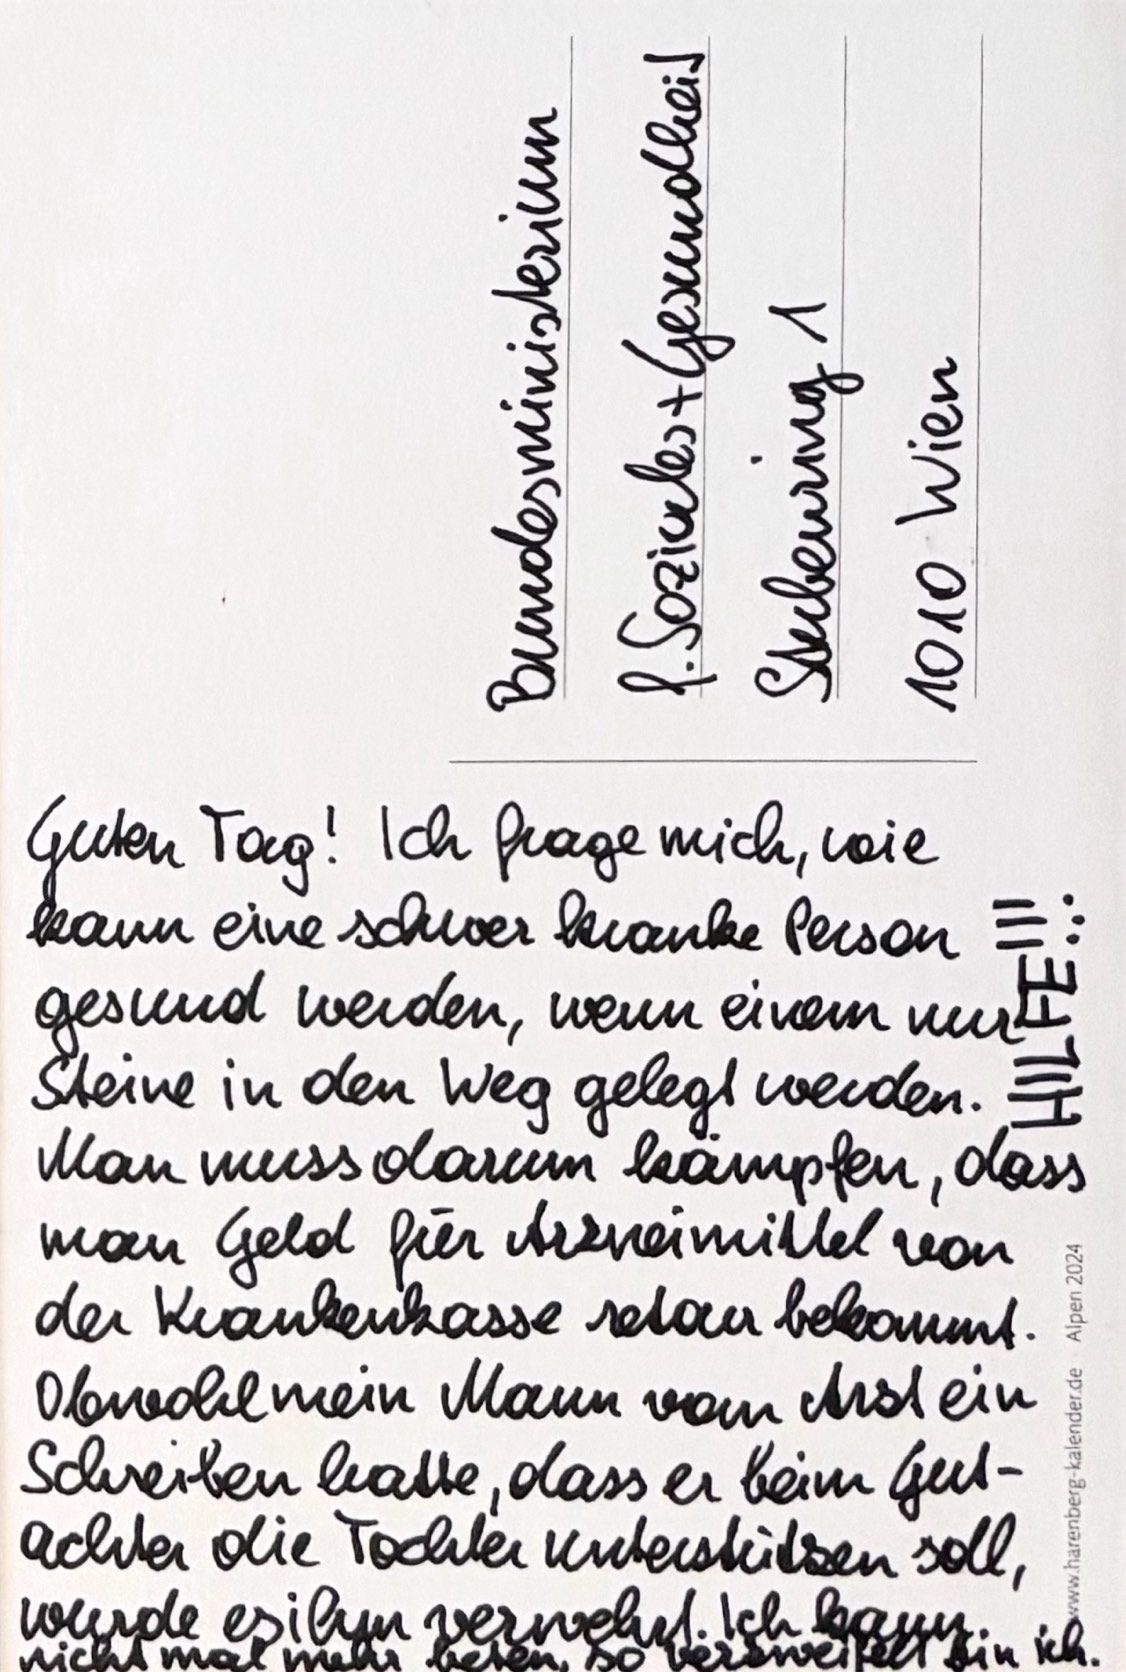 Bundesministerium
f. Soziales + Gesundheit
Stubenring 1
1010 Wien
Guten Tag! Ich frage mich, wie
kann eine schwer kranke Person
gesund werden, wenn einem nur
Steine in den Weg gelegt werden.
Man muss darum kämpfen, dass
man Geld für Arzneimittel von
der Krankenkasse retour bekommt.
Obwohl mein Mann vom Arzt ein
Schreiben hatte, dass er beim Gut-
achter die Tochter unterstützen soll,
wurde es ihm verwehrt. Ich kann
nicht mal mehr beten, so verzweifelt bin ich.
HILFE!!!
www.harenberg-kalender.de · Alpen 2024